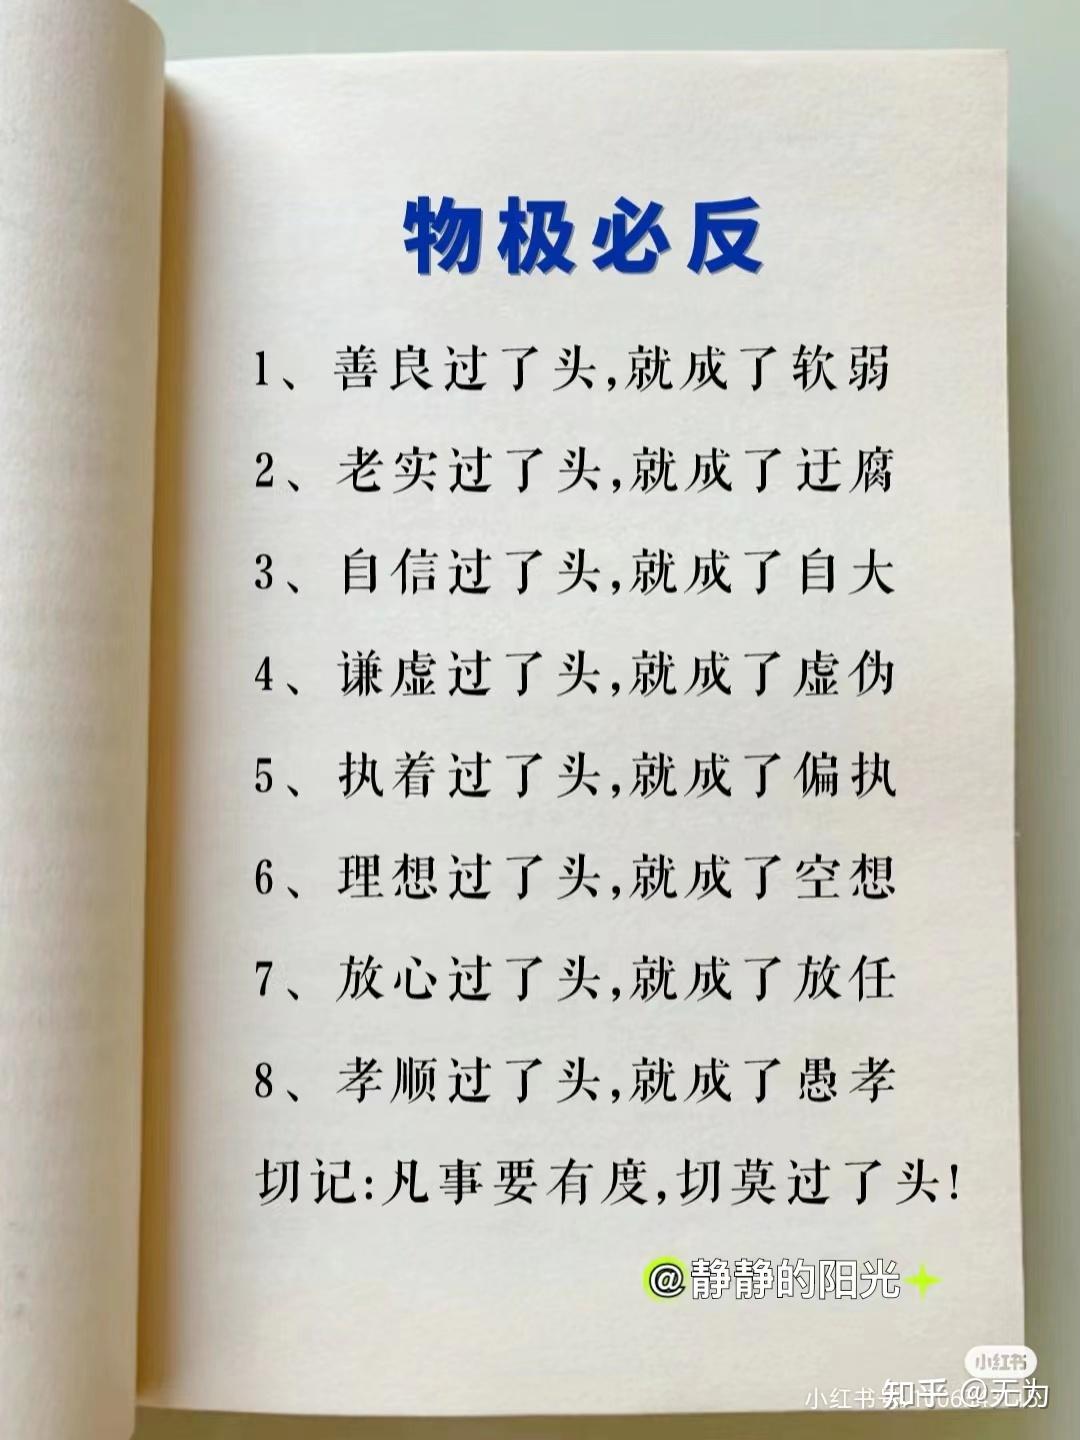 物极必反
1、善良过了头,就成了软弱
2、老实过了头,就成了迂腐
3、自信过了头,就成了自大
4、谦虚过了头,就成了虚伪
5、执着过了头,就成了偏执
6、理想过了头,就成了空想
7、放心过了头,就成了放任
8、孝顺过了头,就成了愚孝
切记:凡事要有度,切莫过了头!
@静静的阳光
小红书
小红书号:
知乎 @无为